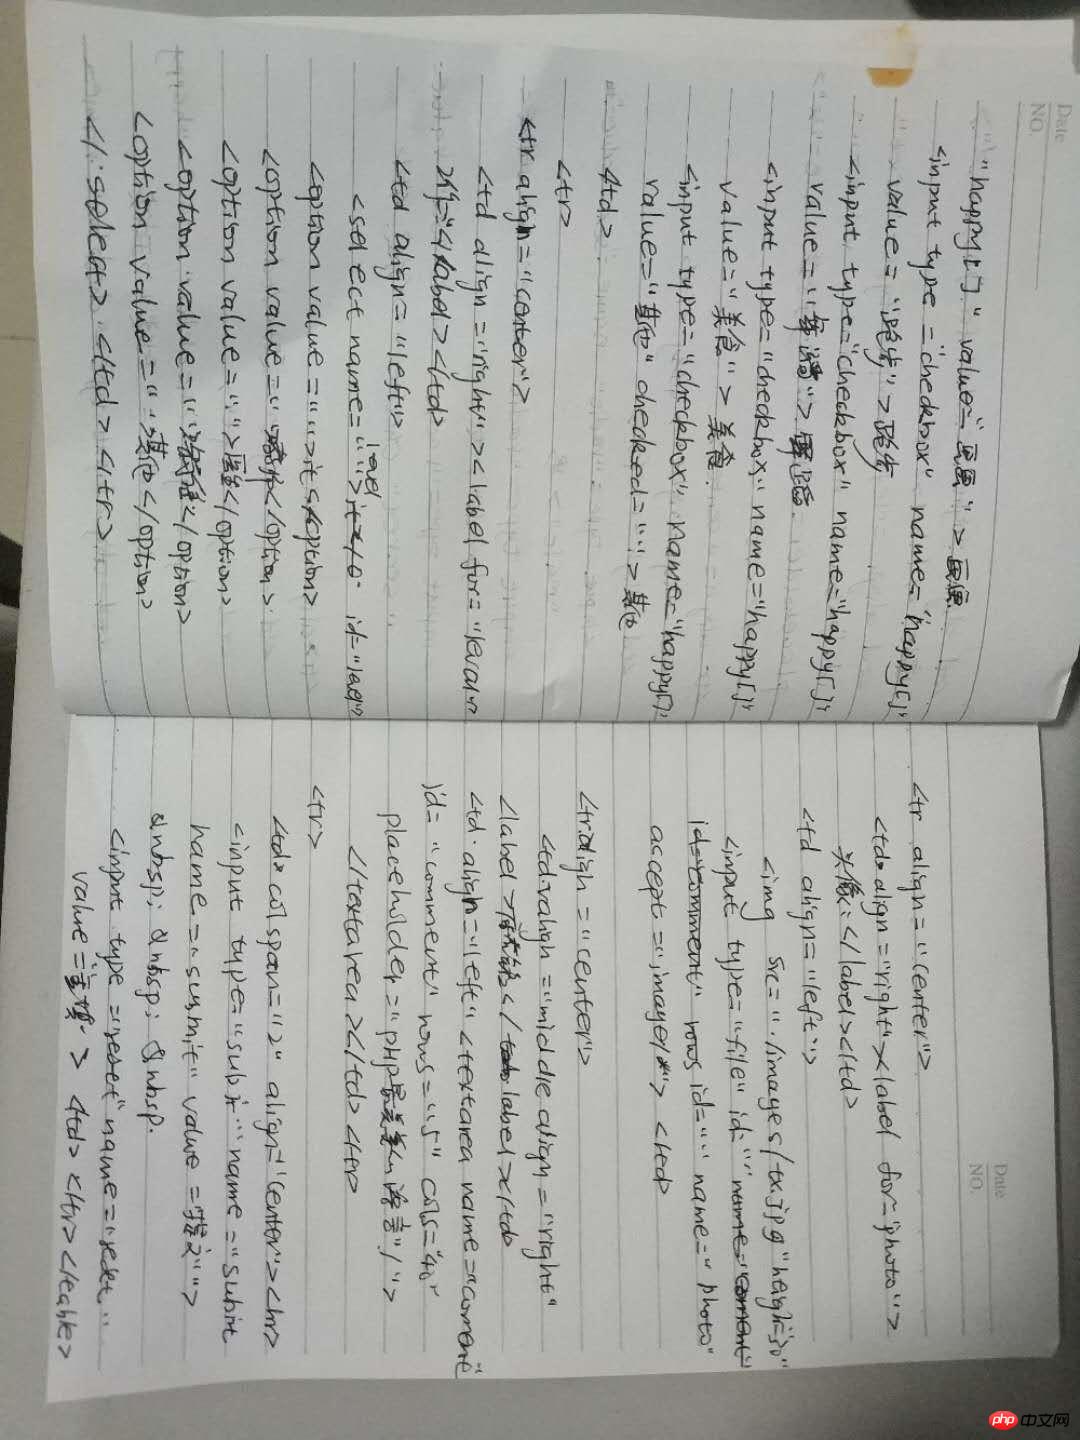 Date
NO.
"happy[]" value="画画">画画
<input type="checkbox" name="happy[]"
value="跑步">跑步
<input type="checkbox" name="happy[]"
value="
<input type="checkbox" name="happy[]"
value="美食">美食.
<input type="checkbox" name="happy[]"
value="其他" checked="">其他
<td>
<tr>
<tr align="center">
<td align="right"><label for="
</label></td>
<td align="left">
<select name="level" id="
<option value="">it</option>
<option value="
</option>
<option value="">医生</option>
<option value="
</option>
<option value="其他</option>
</select></td></tr>
Date
NO.
<tr align="center">
<td align="right"><label for="photo">
头像:</label></td>
<td align="left">
<img src="./images/tx.jpg" heigh="30"
<input type="file" id="" name="coment"
id="comment" rows id="" name="photo"
accept="image/*"></td>
<tr align="center">
<td valigh="middle align="right"
<label>
</label></td>
<td align="left" <textarea name="coment"
id="comment" rows="5" cols="40"
placeholder="php是美丽语言"/>
</textarea></td></tr>
<tr>
<td colspan="2" align="center"><hr>
<input type="subit" name="subit
name="susmit" value="提交">
&nbsp; &nbsp; &nbsp.
<input type="reset" name="reset"
value="重填"> <td></tr></table>
php 中文网